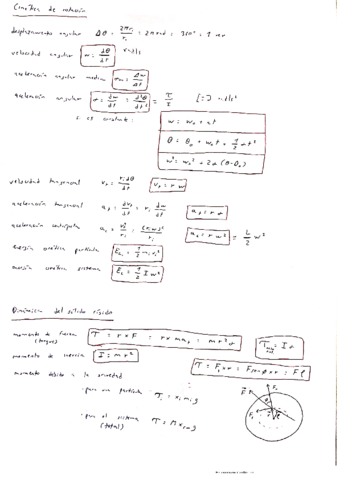 Cinemática de rotación
desplazamiento angular Δθ = 2πr_i / r_i = 2π rad = 360° = 1 rev
velocidad angular ω = dθ/dt rad/s
aceleración angular media α_m = Δω/Δt
aceleración angular α = dω/dt = d²θ/dt² = τ/I [=] rad/s²
si es constante: ω = ω₀ + αt
θ = θ₀ + ω₀t + 1/2 αt²
ω² = ω₀² + 2α(θ-θ₀)
velocidad tangencial v_t = r_i dθ/dt v_t = r ω
aceleración tangencial a_t = dv_t/dt = r_i dω/dt a_t = r α
aceleración centrípeta a_c = v_t²/r_i = (r_i ω)²/r_i a_c = r ω²
energía cinética partícula E_c = 1/2 m_i v_i²
energía cinética sistema E_c = 1/2 I ω²
Dinámica del sólido rígido
momento de fuerza (torque) τ = r × F = r × m a_t = m r² α
momento de inercia I = m r²
τ = F_t × r = F sin φ × r = F l
momento debido a la gravedad
- para una partícula τ_i = x_i m_i g
- para el sistema (total) τ = M x_cm g